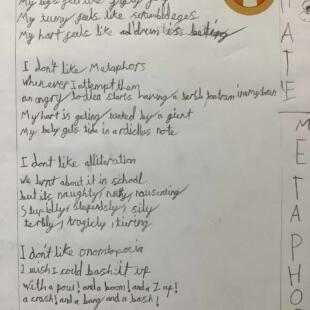 My tumy feels like scrumbld eges
My hart feels like a drum is beting
I don't like Metaphors
whenever I attempt them
an angry starts having a tantrum in my brain
My hart is geting by a gient
My bely gets tide in a ridicllus note
I don't like alliteration
we lernt about it in school
but its naughty, nutty, nauseating
Stupidley, stependsly, sily
terbly, tragicly, tiring
I don't like onomtopocia
I wish I could bash it up
With a pow! and a boom! and a Zap!
a crash! and a bang and a bash!
A
T
E
M
E
T
A
P
H
O